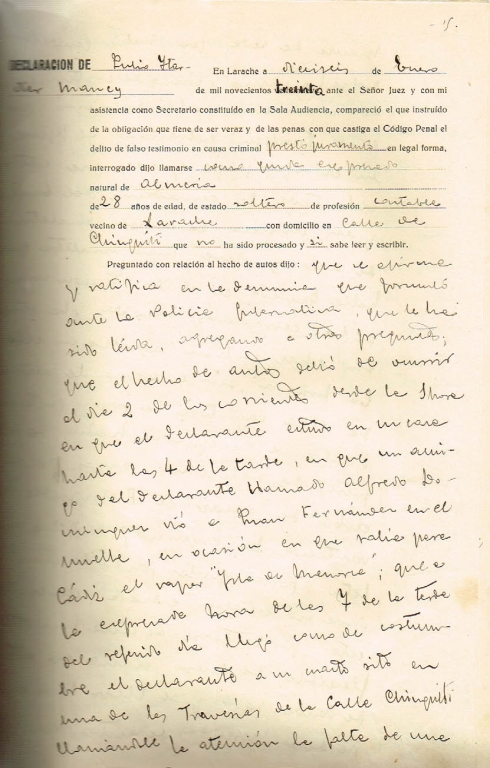 15.
DECLARACION DE Julio Iter-
En Larache a dieciseis de Enero
Mancy de mil novecientos treinta ante el Señor Juez y con mi
asistencia como Secretario constituído en la Sala Audiencia, compareció el que instruído
de la obligación que tiene de ser veraz y de las penas con que castiga el Código Penal el
delito de falso testimonio en causa criminal prestó juramento en legal forma,
interrogado dijo llamarse como queda expresado
natural de Almeria
de 28 años de edad, de estado soltero de profesión contable
vecino de Larache con domicilio en Calle de
Chinguiti que no ha sido procesado y si sabe leer y escribir.
Preguntado con relación al hecho de autos dijo: que se afirma
y ratifica en la denuncia que formuló
ante la Policia Gubernativa, que le ha
sido leida, agregando a otras preguntas;
que el hecho de autos debió de ocurrir
el dia 2 de los corrientes desde la Hora
en que el declarante estuvo en su casa
hasta las 4 de la tarde, en que un ami-
go del declarante llamado Alfredo Do-
minguez vió a Juan Fernández en el
muelle, en ocasión en que salia para
Cádiz el vapor "Isla de Menorca"; que a
la expresada hora de las 7 de la tarde
del referido dia llegó como de costum-
bre el declarante a un cuarto sito en
una de las Travesías de la Calle Chinguiti
llamándole la atención la falta de una